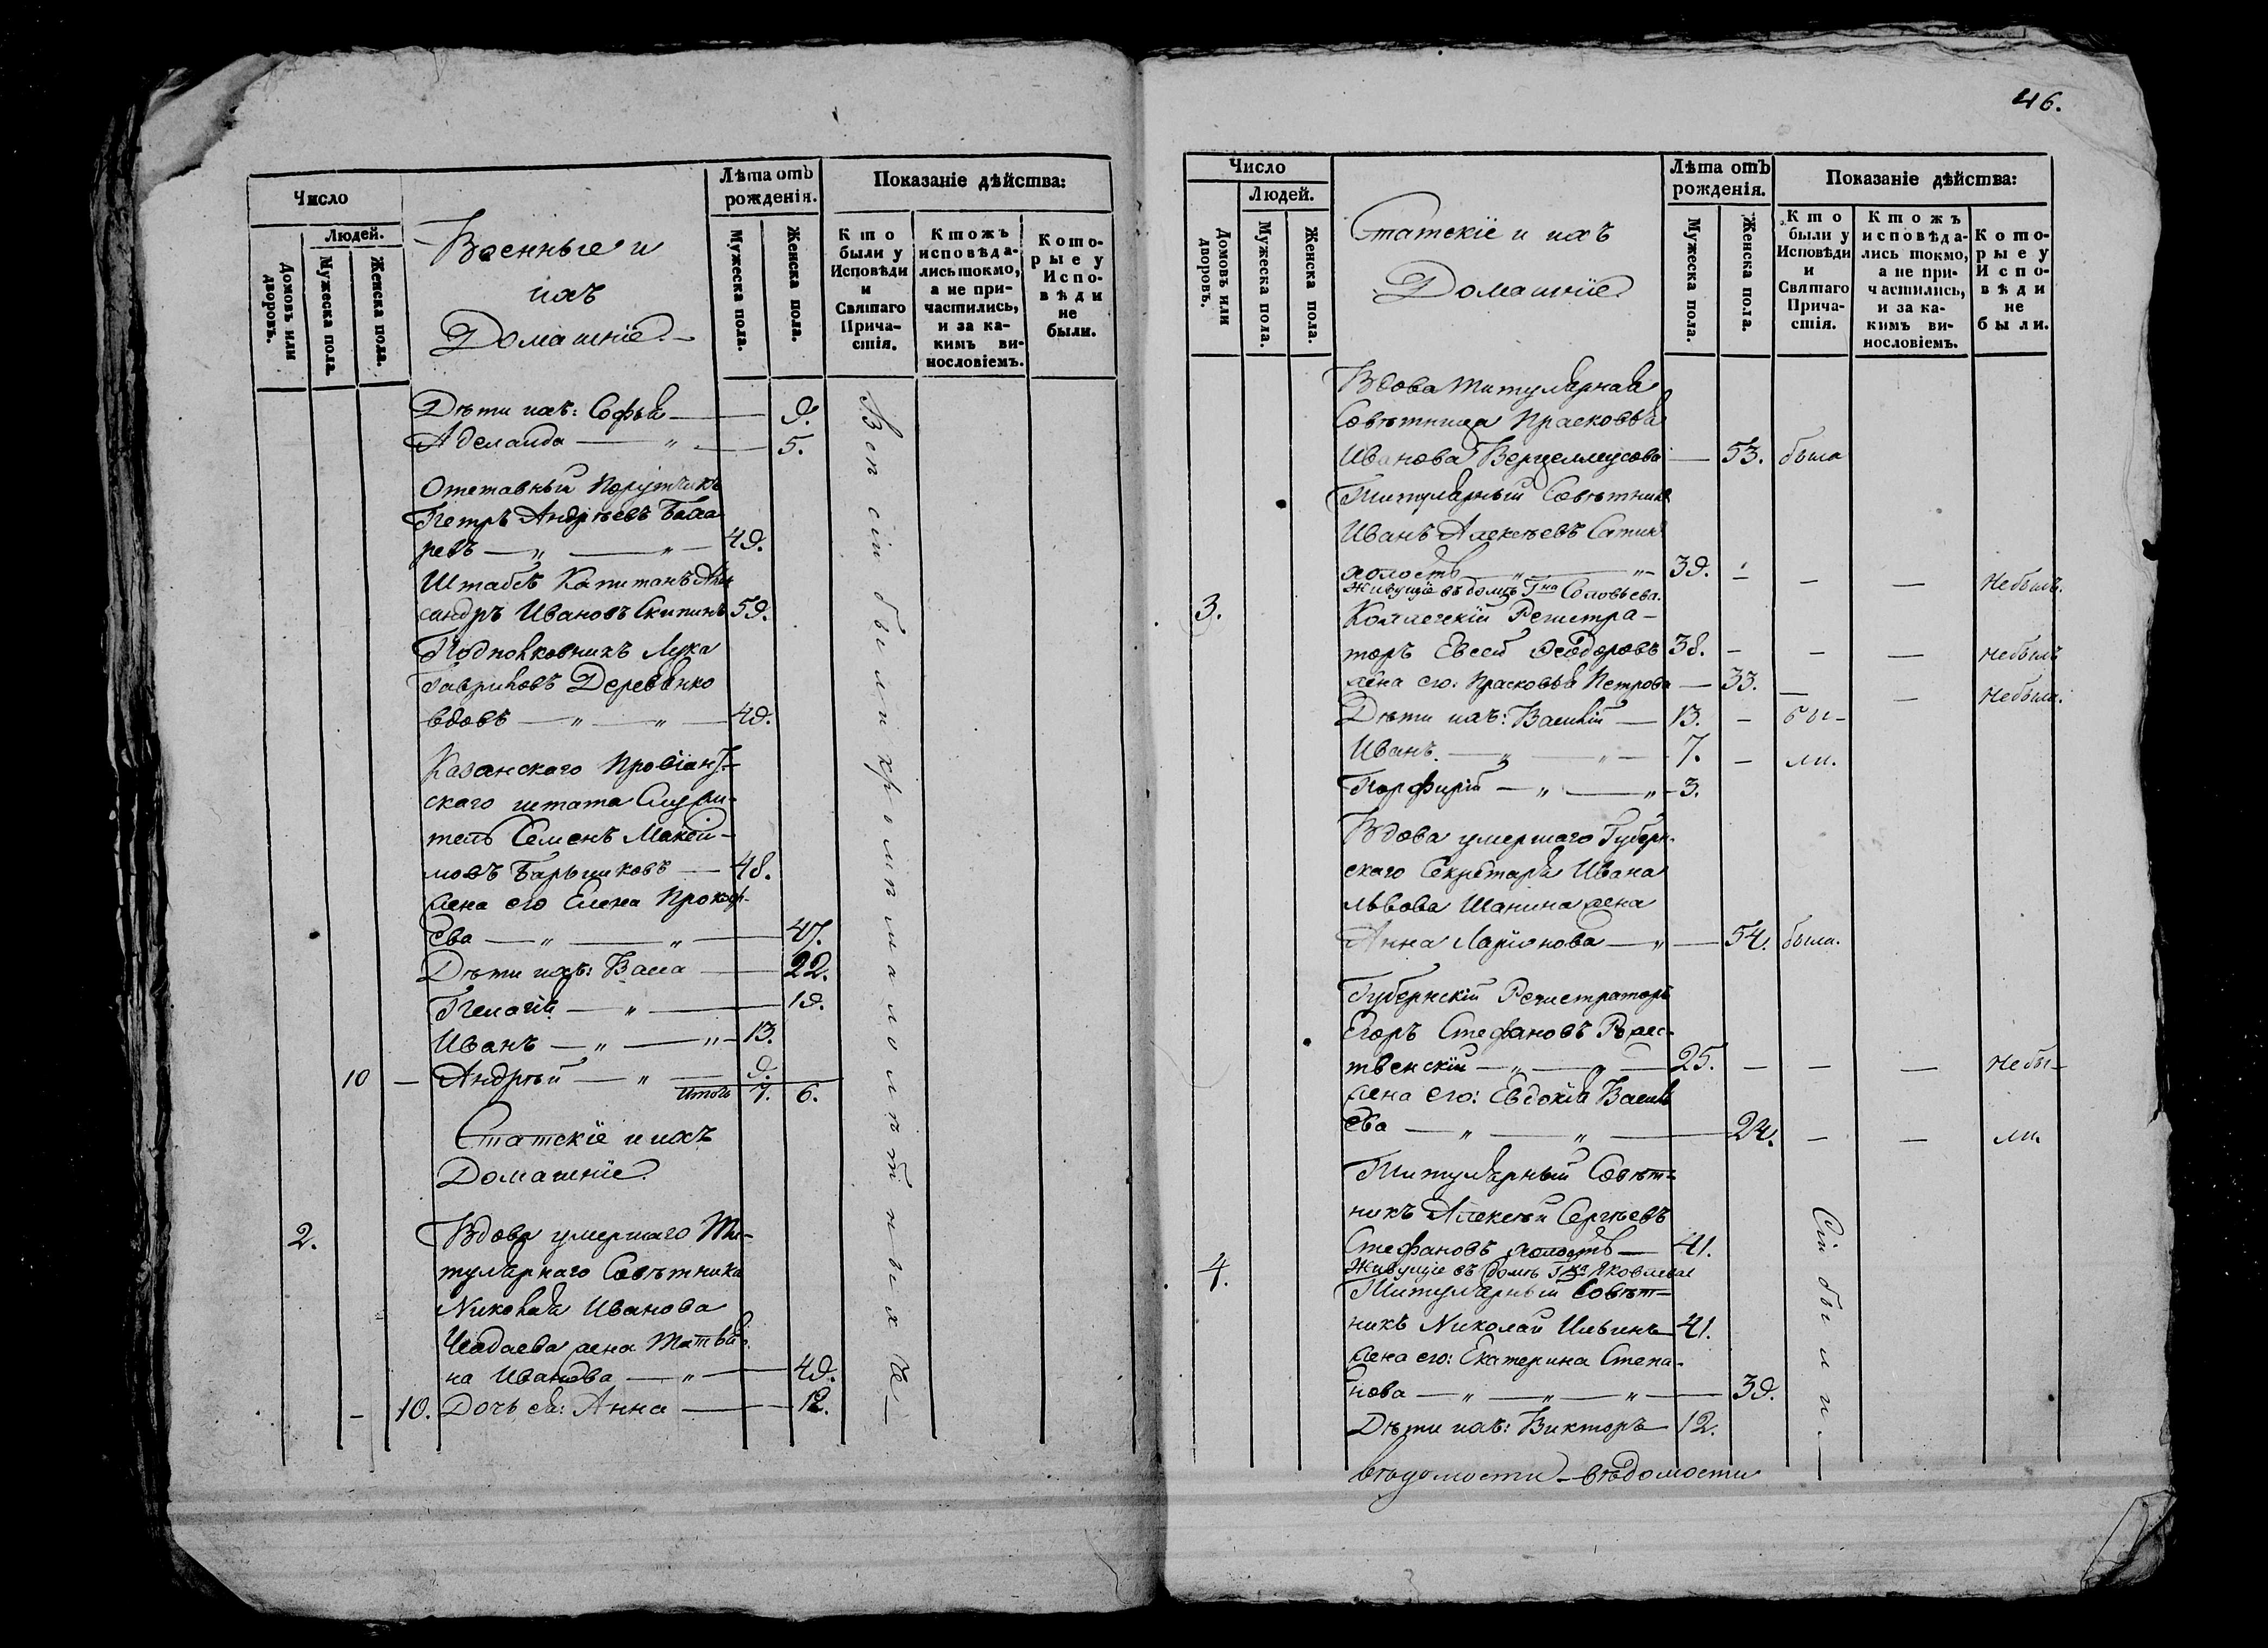 Число
Людей.
Домовъ или дворовъ.
Мужеска пола.
Женска пола.
Военные и
ихъ
Домашніе.
Лѣта отъ
рожденія.
Мужеска пола.
Женска пола.
Показаніе дѣйства:
Кто
были у
Исповѣди
и
Святаго
Прича-
стія.
Ктожъ
исповѣда-
лись токмо,
а не при-
частились,
и за ка-
кимъ ви-
нословіемъ.
Кото-
рые у
Испо-
вѣди
не
были.
Дѣти ихъ: Софья — 9.
Аделаида — „ — 5.
Отставный Порутчикъ
Петръ Андрѣевъ
ревъ — „ — „ — 49.
Штабсъ Капитанъ Алек
сандръ Ивановъ Скипинъ 59.
Подполковникъ Лука
Гавриловъ Деревянко
вдовъ — „ — „ — 49.
Казанскаго Провіант-
скаго штата Служи-
тель Семенъ Макси-
мовъ Барышковъ — 48.
жена его Елена Прокоф-
ева — „ — „ — 47.
Дѣти ихъ: Васса — 22.
Пелагія — „ — 19.
Иванъ — „ — „ — 13.
10 — Андрѣй — „ — 9.
Итого 7. 6.
Статскіе и ихъ
Домашніе
2. Вдова умершаго Ти-
тулярнаго Совѣтника
Николая Иванова
Чадаева жена Матвѣ
на Иванова — „ — 49.
— 10. Дочь ея: Анна — 12.
Всѣ сіи были кромѣ малолѣтныхъ
46.
Число
Людей.
Домовъ или дворовъ.
Мужеска пола.
Женска пола.
Статскіе и ихъ
Домашніе
Лѣта отъ
рожденія.
Мужеска пола.
Женска пола.
Показаніе дѣйства:
Кто
были у
Исповѣди
и
Святаго
Прича-
стія.
Ктожъ
исповѣда-
лись токмо,
а не при-
частились,
и за ка-
кимъ ви-
нословіемъ.
Кото-
рые у
Испо-
вѣди
не
были.
Вдова титулярная
Совѣтница Прасковья
Иванова — 53. была
Титулярный Совѣтникъ
Иванъ Алексѣевъ Сатинъ
холостъ — „ — „ — 39. — — — Небылъ.
3. Живущіе въ домѣ Гна Соловьева.
Коллежскій Регистра-
торъ Евсей Ѳеодоровъ 38. — — — небылъ
жена его: Прасковья Петрова — 33. — — Небыла.
Дѣти ихъ: Василій — 13. — бы-
Иванъ — „ — „ — 7. — ли.
Порфирій — „ — „ — 3.
Вдова умершаго Губерн-
скаго Секретаря Ивана
Львова Шанина жена
Анна Ларіонова — „ — 54. была.
Губернскій Регистраторъ
Егоръ Стефановъ Рожес-
твенскій — „ — „ — 25. — — — Небы-
жена его: Евдокія Василь
ева — „ — „ — 24. — — ли.
Титулярный Совѣт-
никъ Алексѣй Сергѣевъ
Стефановъ холостъ — 41.
4. Живущіе въ домѣ Гжа Яковлевае
Титулярный Совѣт-
никъ Николай Ильинъ 41.
жена его: Екатерина Степа-
нова — „ — „ — „ — 39.
Дѣти ихъ: Викторъ — 12.
Сіи были —
вѣдомости — вѣдомости